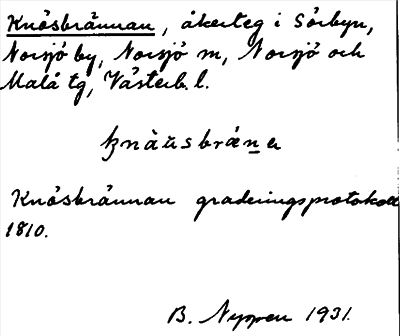 Knösbrännan, åkerteg i Sörbyn,
Norsjö by, Norsjö sn, Norsjö och
Malå tg, Västerb. l.
Knösbrännan graderingsprotokoll
1810.
B. Nyman 1931.